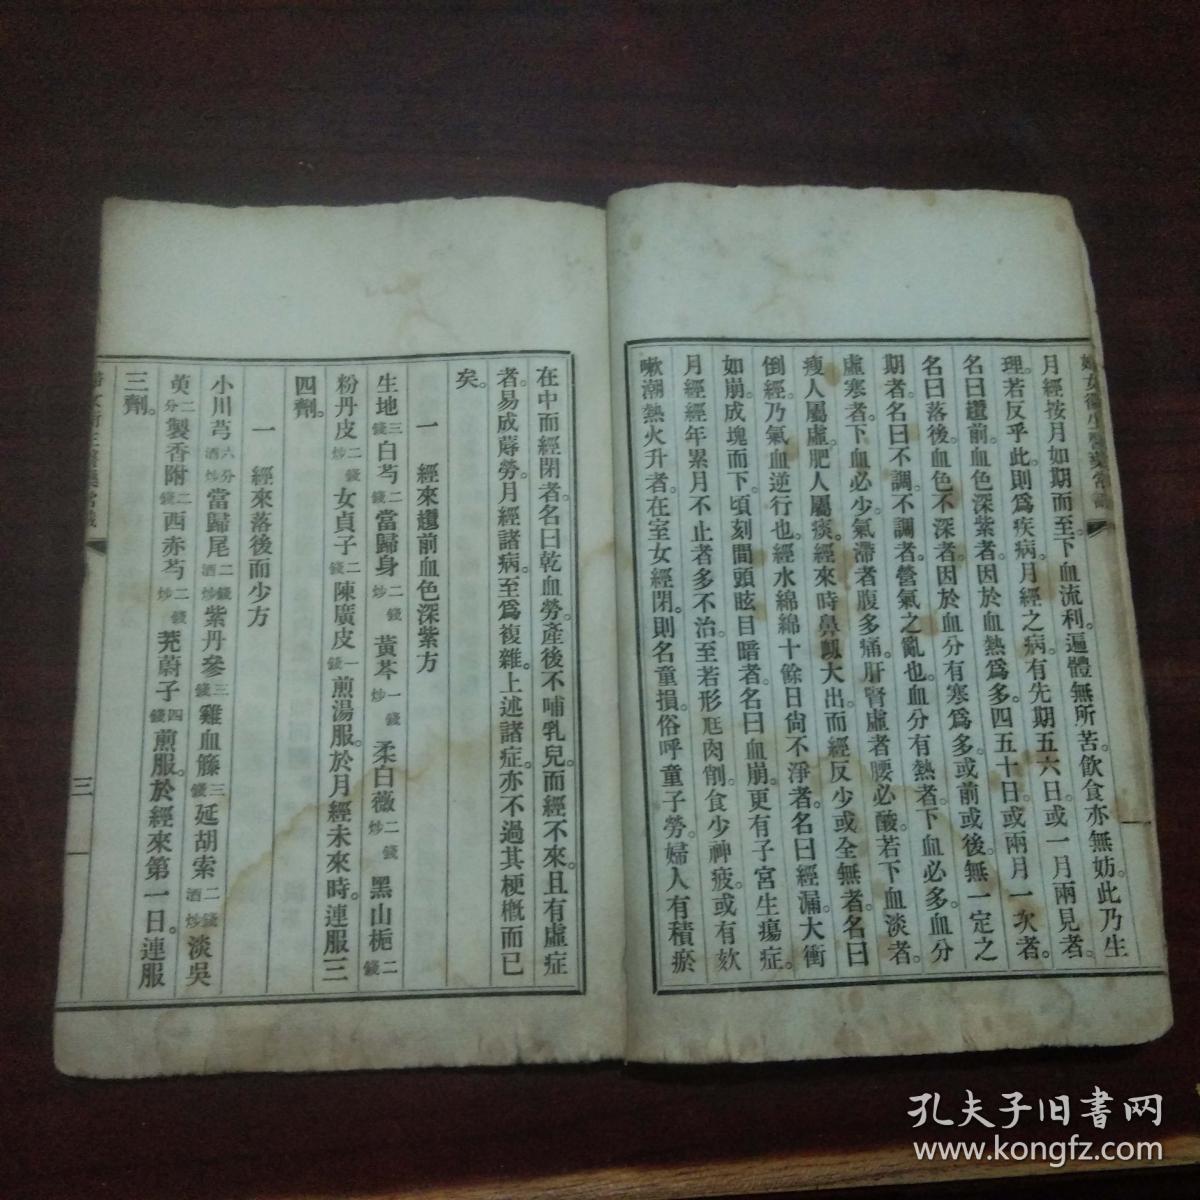 月經按月如期而至。下血流利。遍體無所苦。飲食亦無妨。此乃生
理。若反乎此。則爲疾病。月經之病。有先期五六日。或一月兩見者。
名曰趲前。血色深紫者。因於血熱爲多。四五十日。或兩月一次者。
名曰落後。血色不深者。因於血分有寒爲多。或前或後。無一定之
期者。名曰不調。不調者。營氣之亂也。血分有熱者。下血必多。血分
虛寒者。下血必少。氣滯者腹多痛。肝腎虛者腰必酸。若下血淡者。
瘦人屬虛。肥人屬痰。經來時鼻衄大出。而經反少或全無者。名曰
倒經。乃氣血逆行也。經水綿綿十餘日尙不淨者。名曰經漏。大衝
如崩。成塊而下。頃刻間頭眩目暗者。名曰血崩。更有子宮生瘍症。
月經經年累月不止者。多不治。至若形尫肉削。食少神疲。或有欬
嗽潮熱火升者。在室女經閉。則名童損。俗呼童子勞。婦人有積瘀
在中而經閉者。名曰乾血勞。產後不哺乳兒。而經不來。且有虛症
者。易成蓐勞。月經諸病。至爲複雜。上述諸症。亦不過其梗概而已
矣。
一 經來趲前血色深紫方
生地三錢 白芍二錢 當歸身二錢炒 黃芩一錢炒 柔白薇二錢炒 黑山梔二錢
粉丹皮二錢炒 女貞子二錢 陳廣皮一錢 煎湯服。於月經未來時。連服三
四劑。
一 經來落後而少方
小川芎六分酒炒 當歸尾二錢酒炒 紫丹參三錢 雞血籐三錢 延胡索二錢酒炒 淡吳
萸二分 製香附二錢 西赤芍二錢炒 茺蔚子四錢 煎服。於經來第一日。連服
三劑。
三
孔夫子旧書网
www.kongfz.com